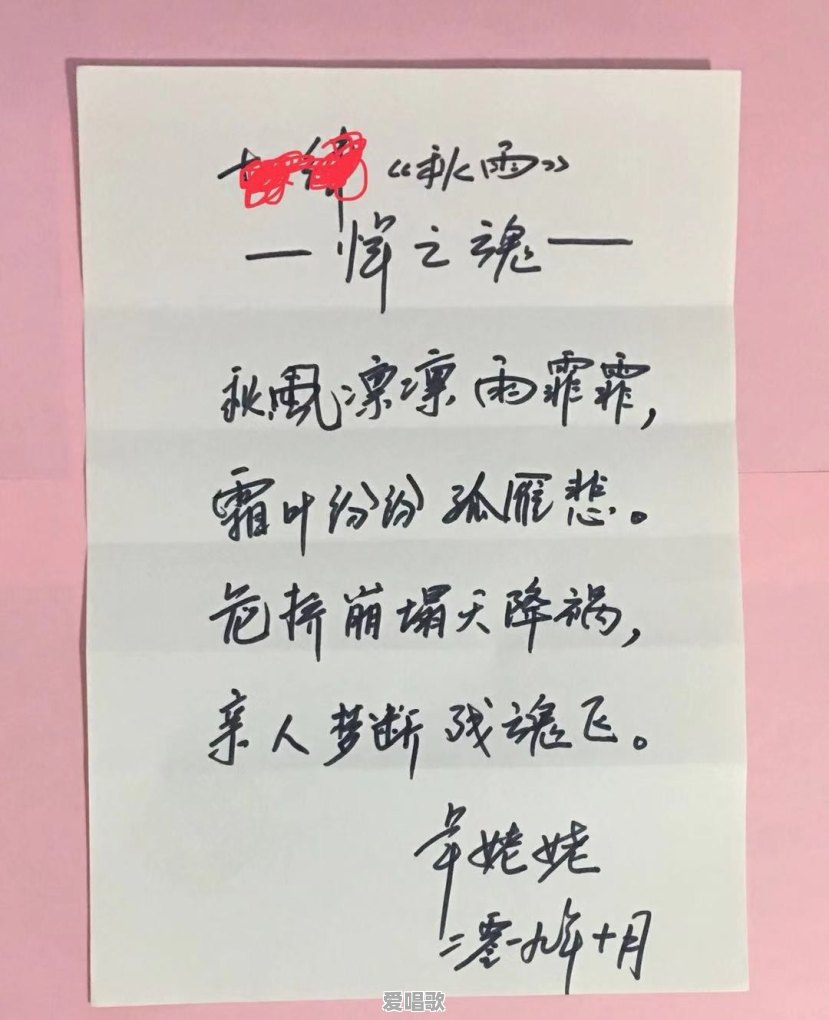 《秋雨》
—悼之魂—
秋風凛凛雨霏霏,
霜叶纷纷孤雁悲。
危桥崩塌天降祸,
亲人梦断残魂飞。
卓姥姥
二零一九年十月
爱唱歌